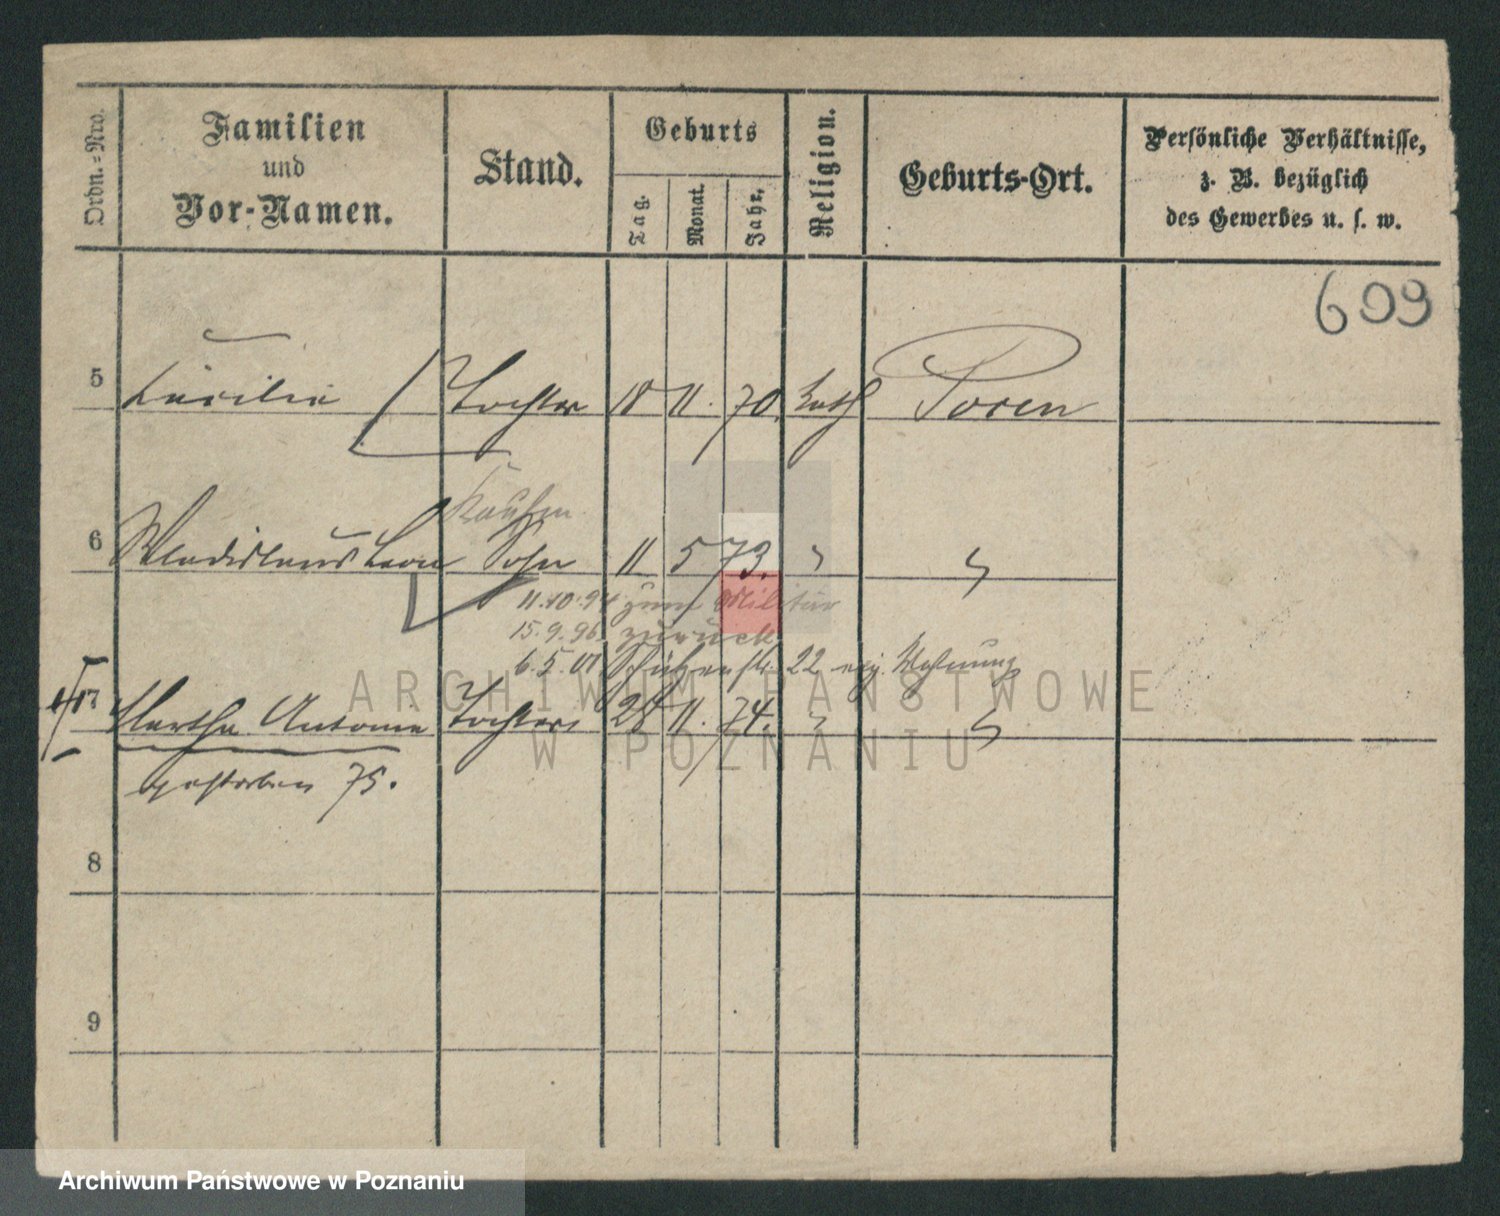 Ordn.=Nro.
Familien
und
Vor-Namen.
Stand.
Geburts
Tag.
Monat.
Jahr.
Religion.
Geburts-Ort.
Persönliche Verhältnisse,
z. B. bezüglich
des Gewerbes u. s. w.
609
5 Cäcilie Tochter 18 11. 70. kath Posen
Kaufm
6 Wladislaus Leon Sohn 11 5 73. " "
11.10.94 zum Militär
15.9.96 zurück
6.5.01 Schützenstr. 22 Wohnung
7 Martha Antonie Tochter 28 11. 74. " "
gestorben 75.
8
9
ARCHIWUM PAŃSTWOWE
W POZNANIU
Archiwum Państwowe w Poznaniu